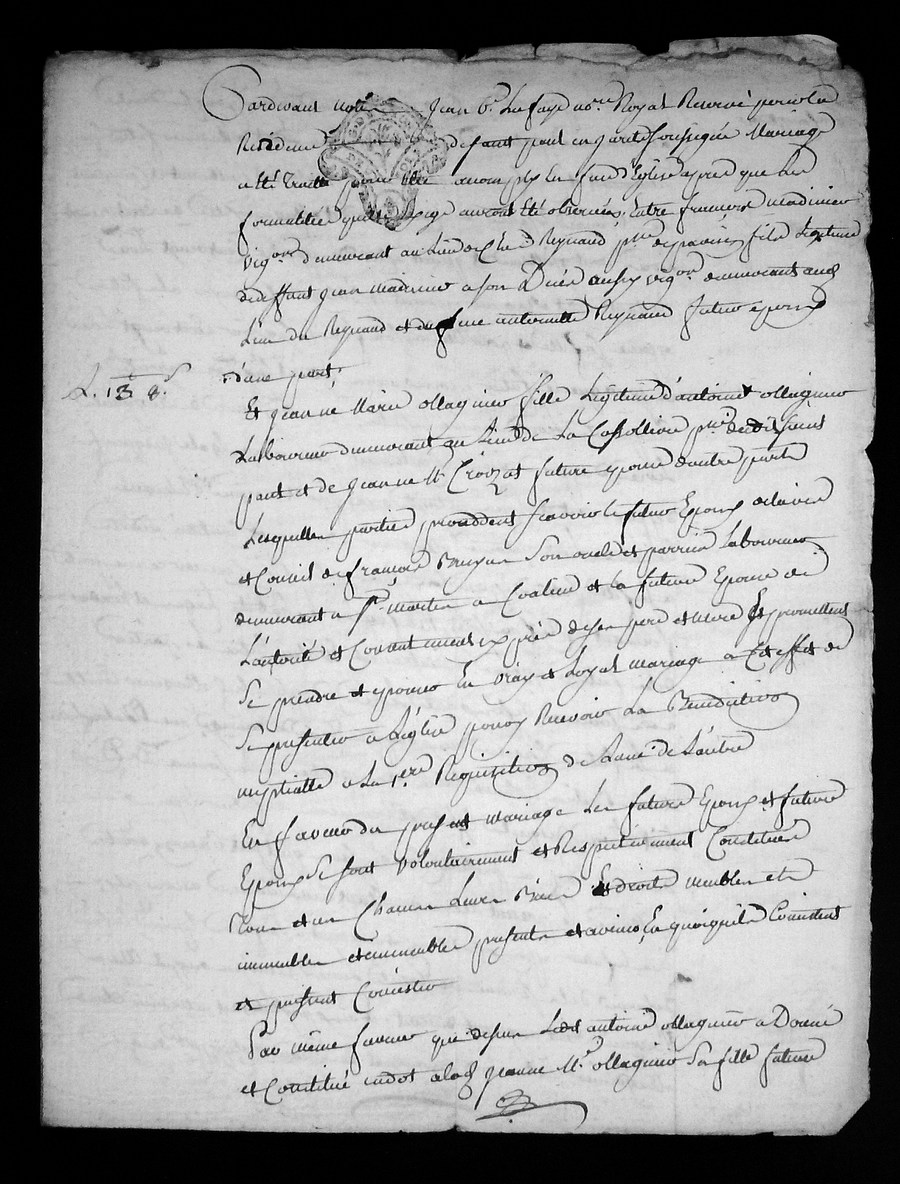 Pardevant notre Jean Bte Lafaye nore Royal Reservé pour la
Residence de fant pour en qarte soussignée Mariage
a été traitté pour être accomply en face d'Eglise apres que les
formalités auront été observées, Entre francois madinier
vigon demeurant au Lieu de Chés Reynaud psse de fils Legitime
de deffunt Jean madinier a son Décés aussy vigon demeurant aud
Lieu du Reynaud et de antoinette Reynaud futur epoux
d'une part,
L. 13 8s
Et Jeanne Marie ollagnier fille Legitime d'antoine ollagnier
Laboureur demeurant au Lieu de La psse dud
part et de Jeanne M. Crouzat future epouse d'autre part
Lesquelles parties procedent scavoir le futur Epoux de l'avis
et Conseil de francois son oncle et parrin Laboureur
demeurant a St martin a Coaleux et la future Epouse de
L'autorité et Consentement exprés de ses pere et mere Et promettent
se prendre et epouser En vray et Loyal mariage a Cet effet de
se presenter a L'église pour y Recevoir La Benediction
nuptialle a La 1ere Requisition de L'une de L'autre
En faveur du present mariage Les futurs Epoux et future
Epouse se sont volontairement et Respectivement Constitués
Tous et un Chacun Leurs Biens Et droits meubles et
immeubles presents et avenir, En quoi qu'ils Consistent
et puissent Consister
Par même faveur que dessus Led antoine ollagnier a Donné
et Constitué en dot a lad Jeanne Me ollagnier sa fille future